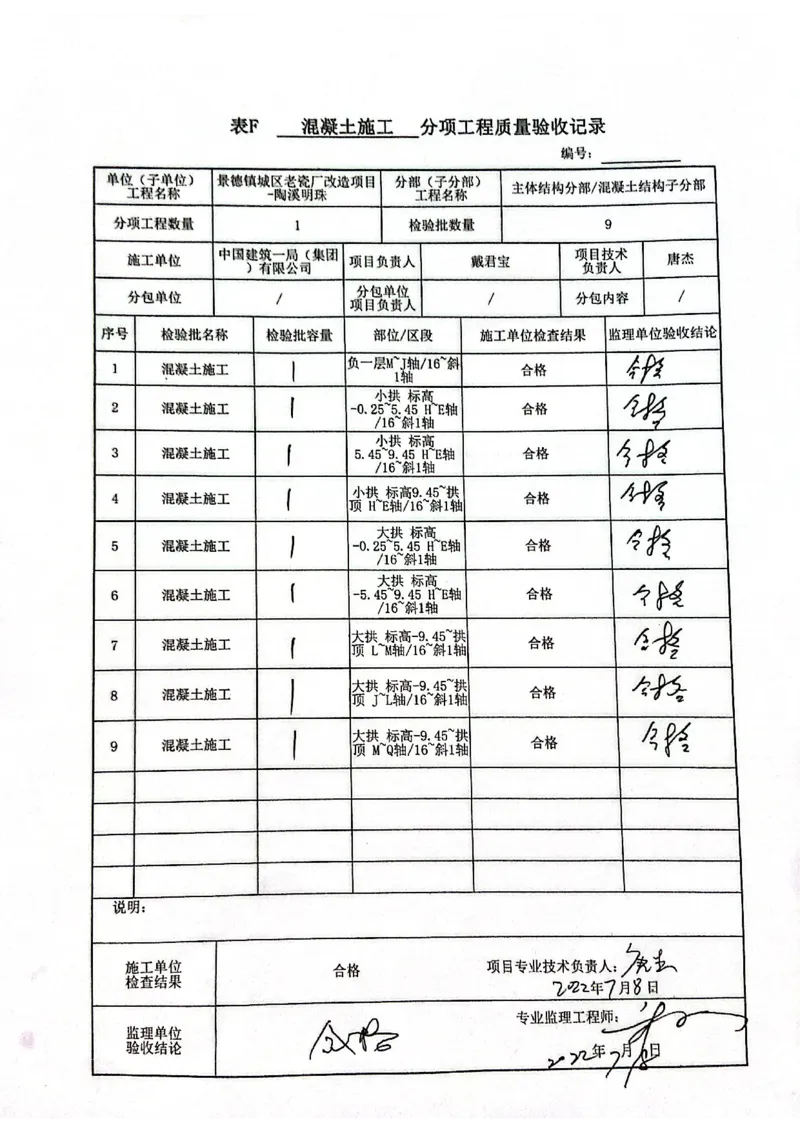 表F 混凝土施工 分项工程质量验收记录
编号：
单位（子单位）工程名称 景德镇城区老瓷厂改造项目-陶溪明珠 分部（子分部）工程名称 主体结构分部/混凝土结构子分部
分项工程数量 1 检验批数量 9
施工单位 中国建筑一局（集团）有限公司 项目负责人 戴君宝 项目技术负责人 唐杰
分包单位 / 分包单位项目负责人 / 分包内容 /
序号 检验批名称 检验批容量 部位/区段 施工单位检查结果 监理单位验收结论
1 混凝土施工 1 负一层M~J轴/16~斜1轴 合格 合格
2 混凝土施工 1 小拱 标高-0.25~5.45 H~E轴/16~斜1轴 合格 合格
3 混凝土施工 1 小拱 标高5.45~9.45 H~E轴/16~斜1轴 合格 合格
4 混凝土施工 1 小拱 标高9.45~拱顶 H~E轴/16~斜1轴 合格 合格
5 混凝土施工 1 大拱 标高-0.25~5.45 H~E轴/16~斜1轴 合格 合格
6 混凝土施工 1 大拱 标高-5.45~9.45 H~E轴/16~斜1轴 合格 合格
7 混凝土施工 1 大拱 标高-9.45~拱顶 L~M轴/16~斜1轴 合格 合格
8 混凝土施工 1 大拱 标高-9.45~拱顶 J~L轴/16~斜1轴 合格 合格
9 混凝土施工 1 大拱 标高-9.45~拱顶 M~Q轴/16~斜1轴 合格 合格
说明：
施工单位检查结果 合格 项目专业技术负责人：唐杰
2022年7月8日
监理单位验收结论 合格 专业监理工程师：
2022年7月8日